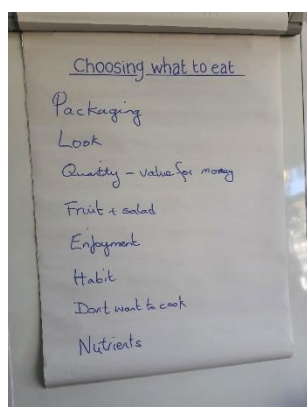 Choosing what to eat
Packaging
Look
Quantity - value for money
Fruit + salad
Enjoyment
Habit
Dont want to cook
Nutrients